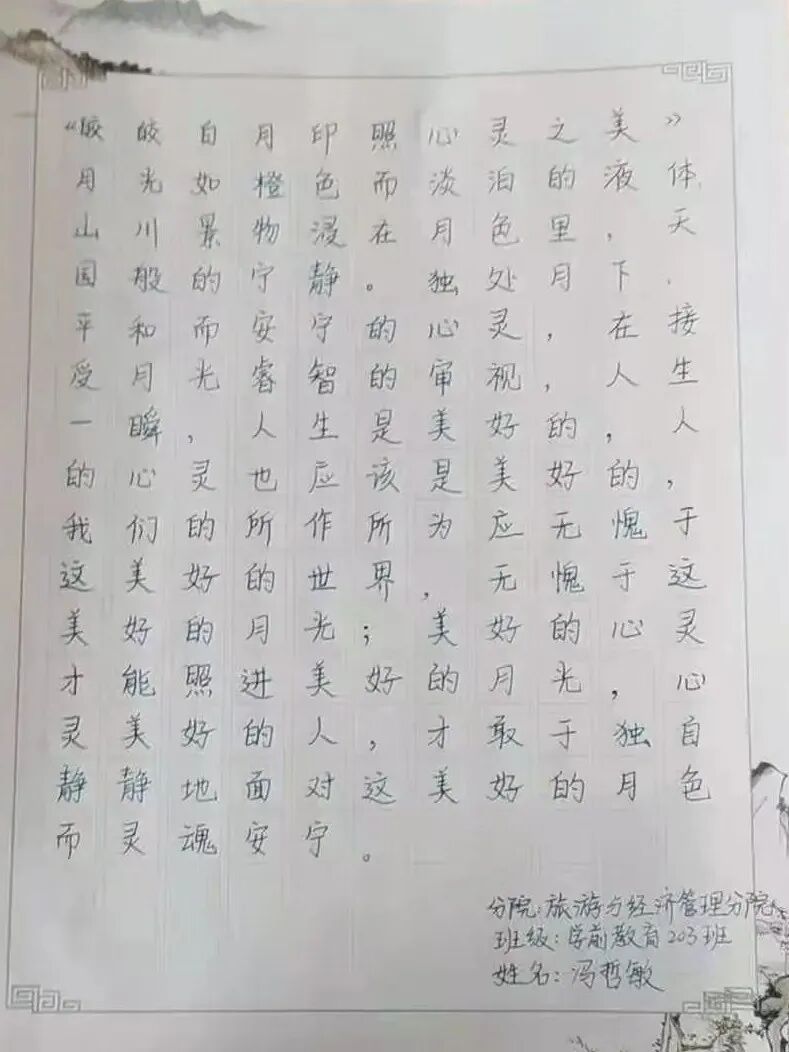 “皎皎白月印照心灵之美”
月光如橙色而淡泊的液体,
山川景物浸在月色里，天
国般的宁静。独处月下，
平和而安宁的心灵，在接
受月光睿智的审视，人生
一瞬，人生是美好的，人，
的心灵也应该是美好的，
我们的所作所为应无愧于
这美好的世界，无愧于这
美好的月光；美好的心灵
才能照进美好的月光，心
灵美好的人，才敢于独自
静静地面对这美好的月色
而灵魂安宁。
分院：旅游与经济管理分院
班级：学前教育203班
姓名：冯哲敏